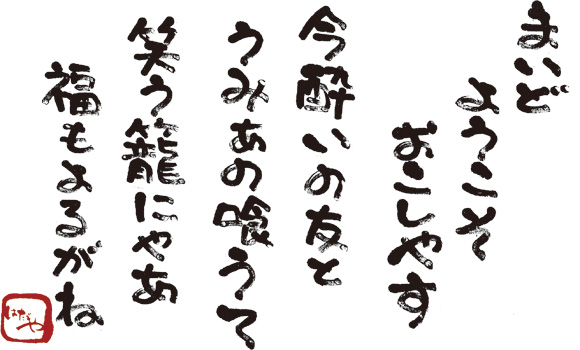 まいど
ようこそ
おこしやす
今酔いの友と
うみあの喰うて
笑う籠にゃあ
福もよるがね
はたごや